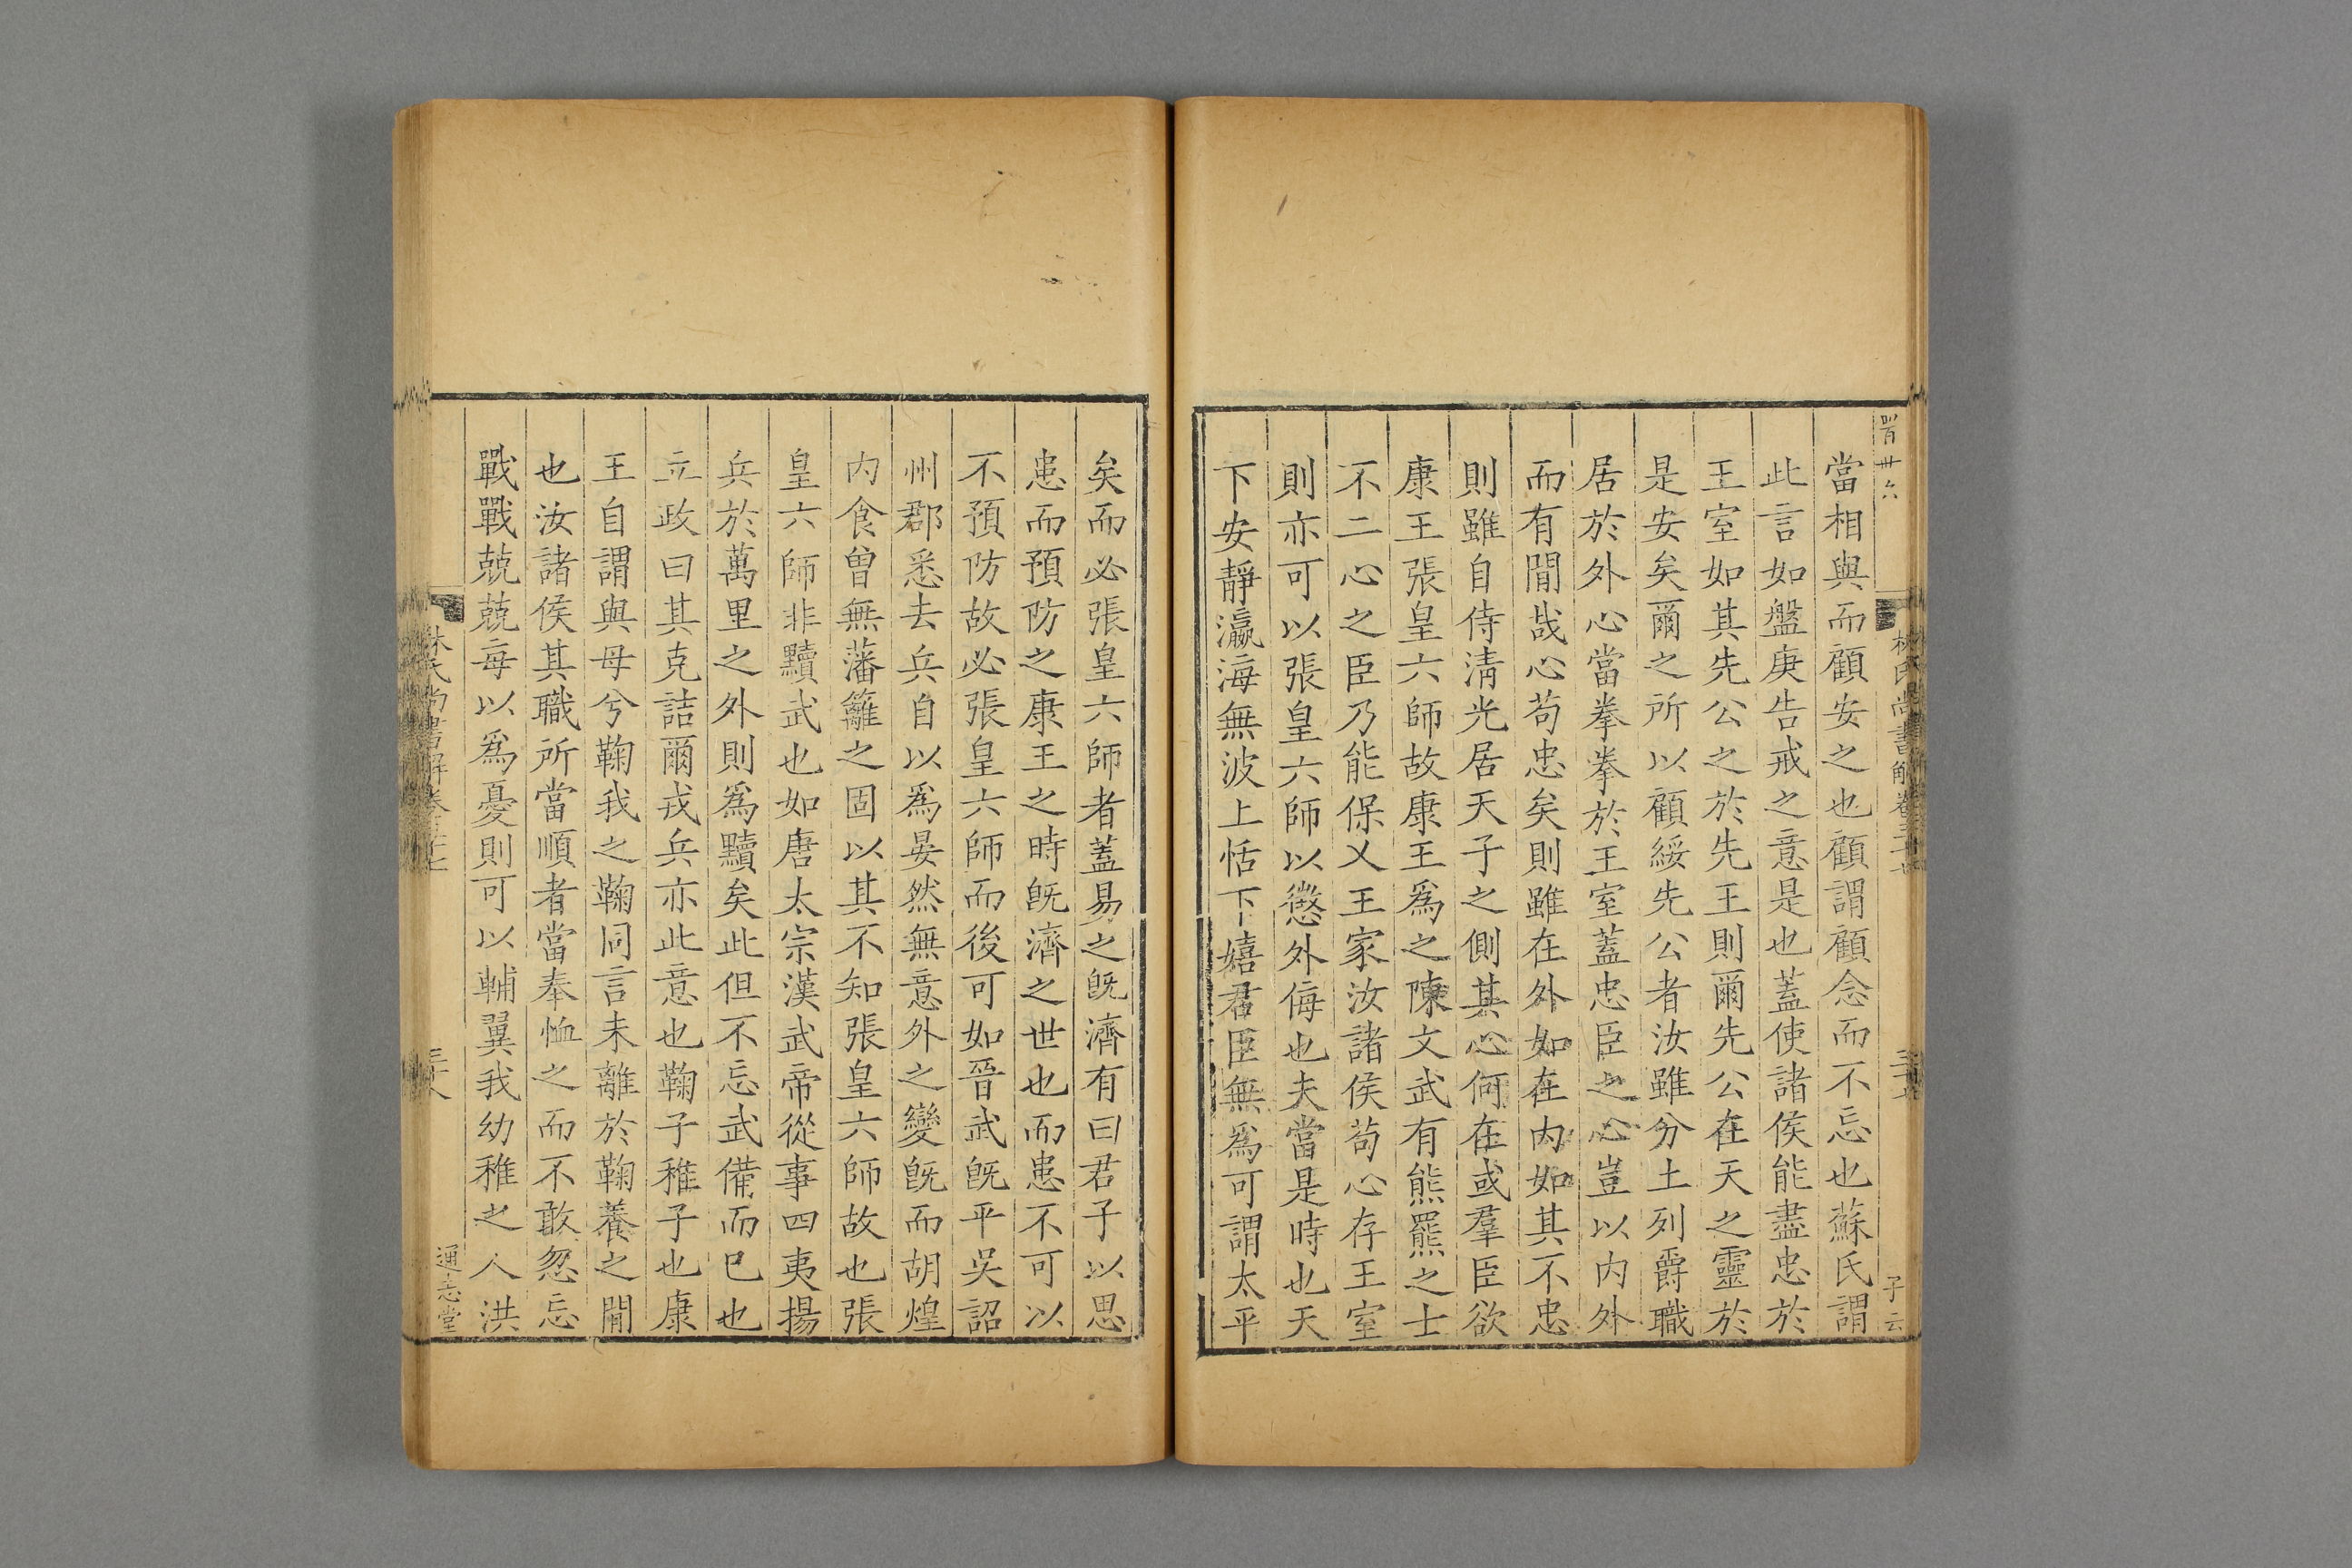 當相與而顧安之也顧謂顧念而不忘也蘇氏謂
此言如盤庚告戒之意是也蓋使諸侯能盡忠於
王室如其先公之於先王則爾先公在天之靈於
是安矣爾之所以顧綏先公者汝雖分土列爵職
居於外心當拳拳於王室蓋忠臣之心豈以内外
而有間哉心苟忠矣則雖在外如在内如其不忠
則雖自侍清光居天子之側其心何在或羣臣欲
康王張皇六師故康王爲之陳文武有熊羆之士
不二心之臣乃能保乂王家汝諸侯苟心存王室
則亦可以張皇六師以懲外侮也夫當是時也天
下安靜瀛海無波上恬下嬉君臣無爲可謂太平
矣而必張皇六師者蓋易之旣濟有曰君子以思
患而預防之康王之時旣濟之世也而患不可以
不預防故必張皇六師而後可如晉武旣平吳詔
州郡悉去兵自以爲晏然無意外之變旣而胡煌
内食曾無藩籬之固以其不知張皇六師故也張
皇六師非黷武也如唐太宗漢武帝從事四夷揚
兵於萬里之外則爲黷矣此但不忘武備而巳也
立政曰其克詰爾戎兵亦此意也鞠子稚子也康
王自謂與母兮鞠我之鞠同言未離於鞠養之間
也汝諸侯其職所當順者當奉恤之而不敢忽忘
戰戰兢兢每以爲憂則可以輔翼我幼稚之人洪
林氏尚書解卷三十七
三十八
通志堂